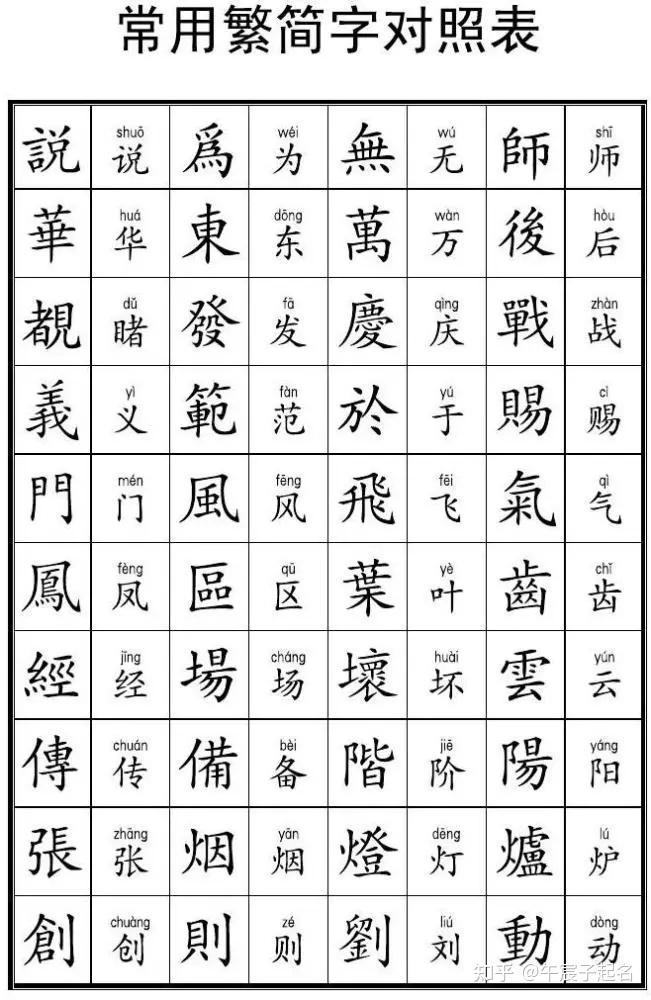 常用繁简字对照表
shuō wéi wú shī
説 说 爲 为 無 无 師 师
huá dōng wàn hòu
華 华 東 东 萬 万 後 后
dǔ fā qìng zhàn
覩 睹 發 发 慶 庆 戰 战
yì fàn yú cì
義 义 範 范 於 于 賜 赐
mén fēng fēi qì
門 门 風 风 飛 飞 氣 气
fèng qū yè chǐ
鳳 凤 區 区 葉 叶 齒 齿
jīng cháng huài yún
經 经 場 场 壞 坏 雲 云
chuán bèi jiē yáng
傳 传 備 备 階 阶 陽 阳
zhāng yān dēng lú
張 张 烟 烟 燈 灯 爐 炉
chuàng zé liú dòng
創 创 則 则 劉 刘 動 动
知乎 @午晨子起名